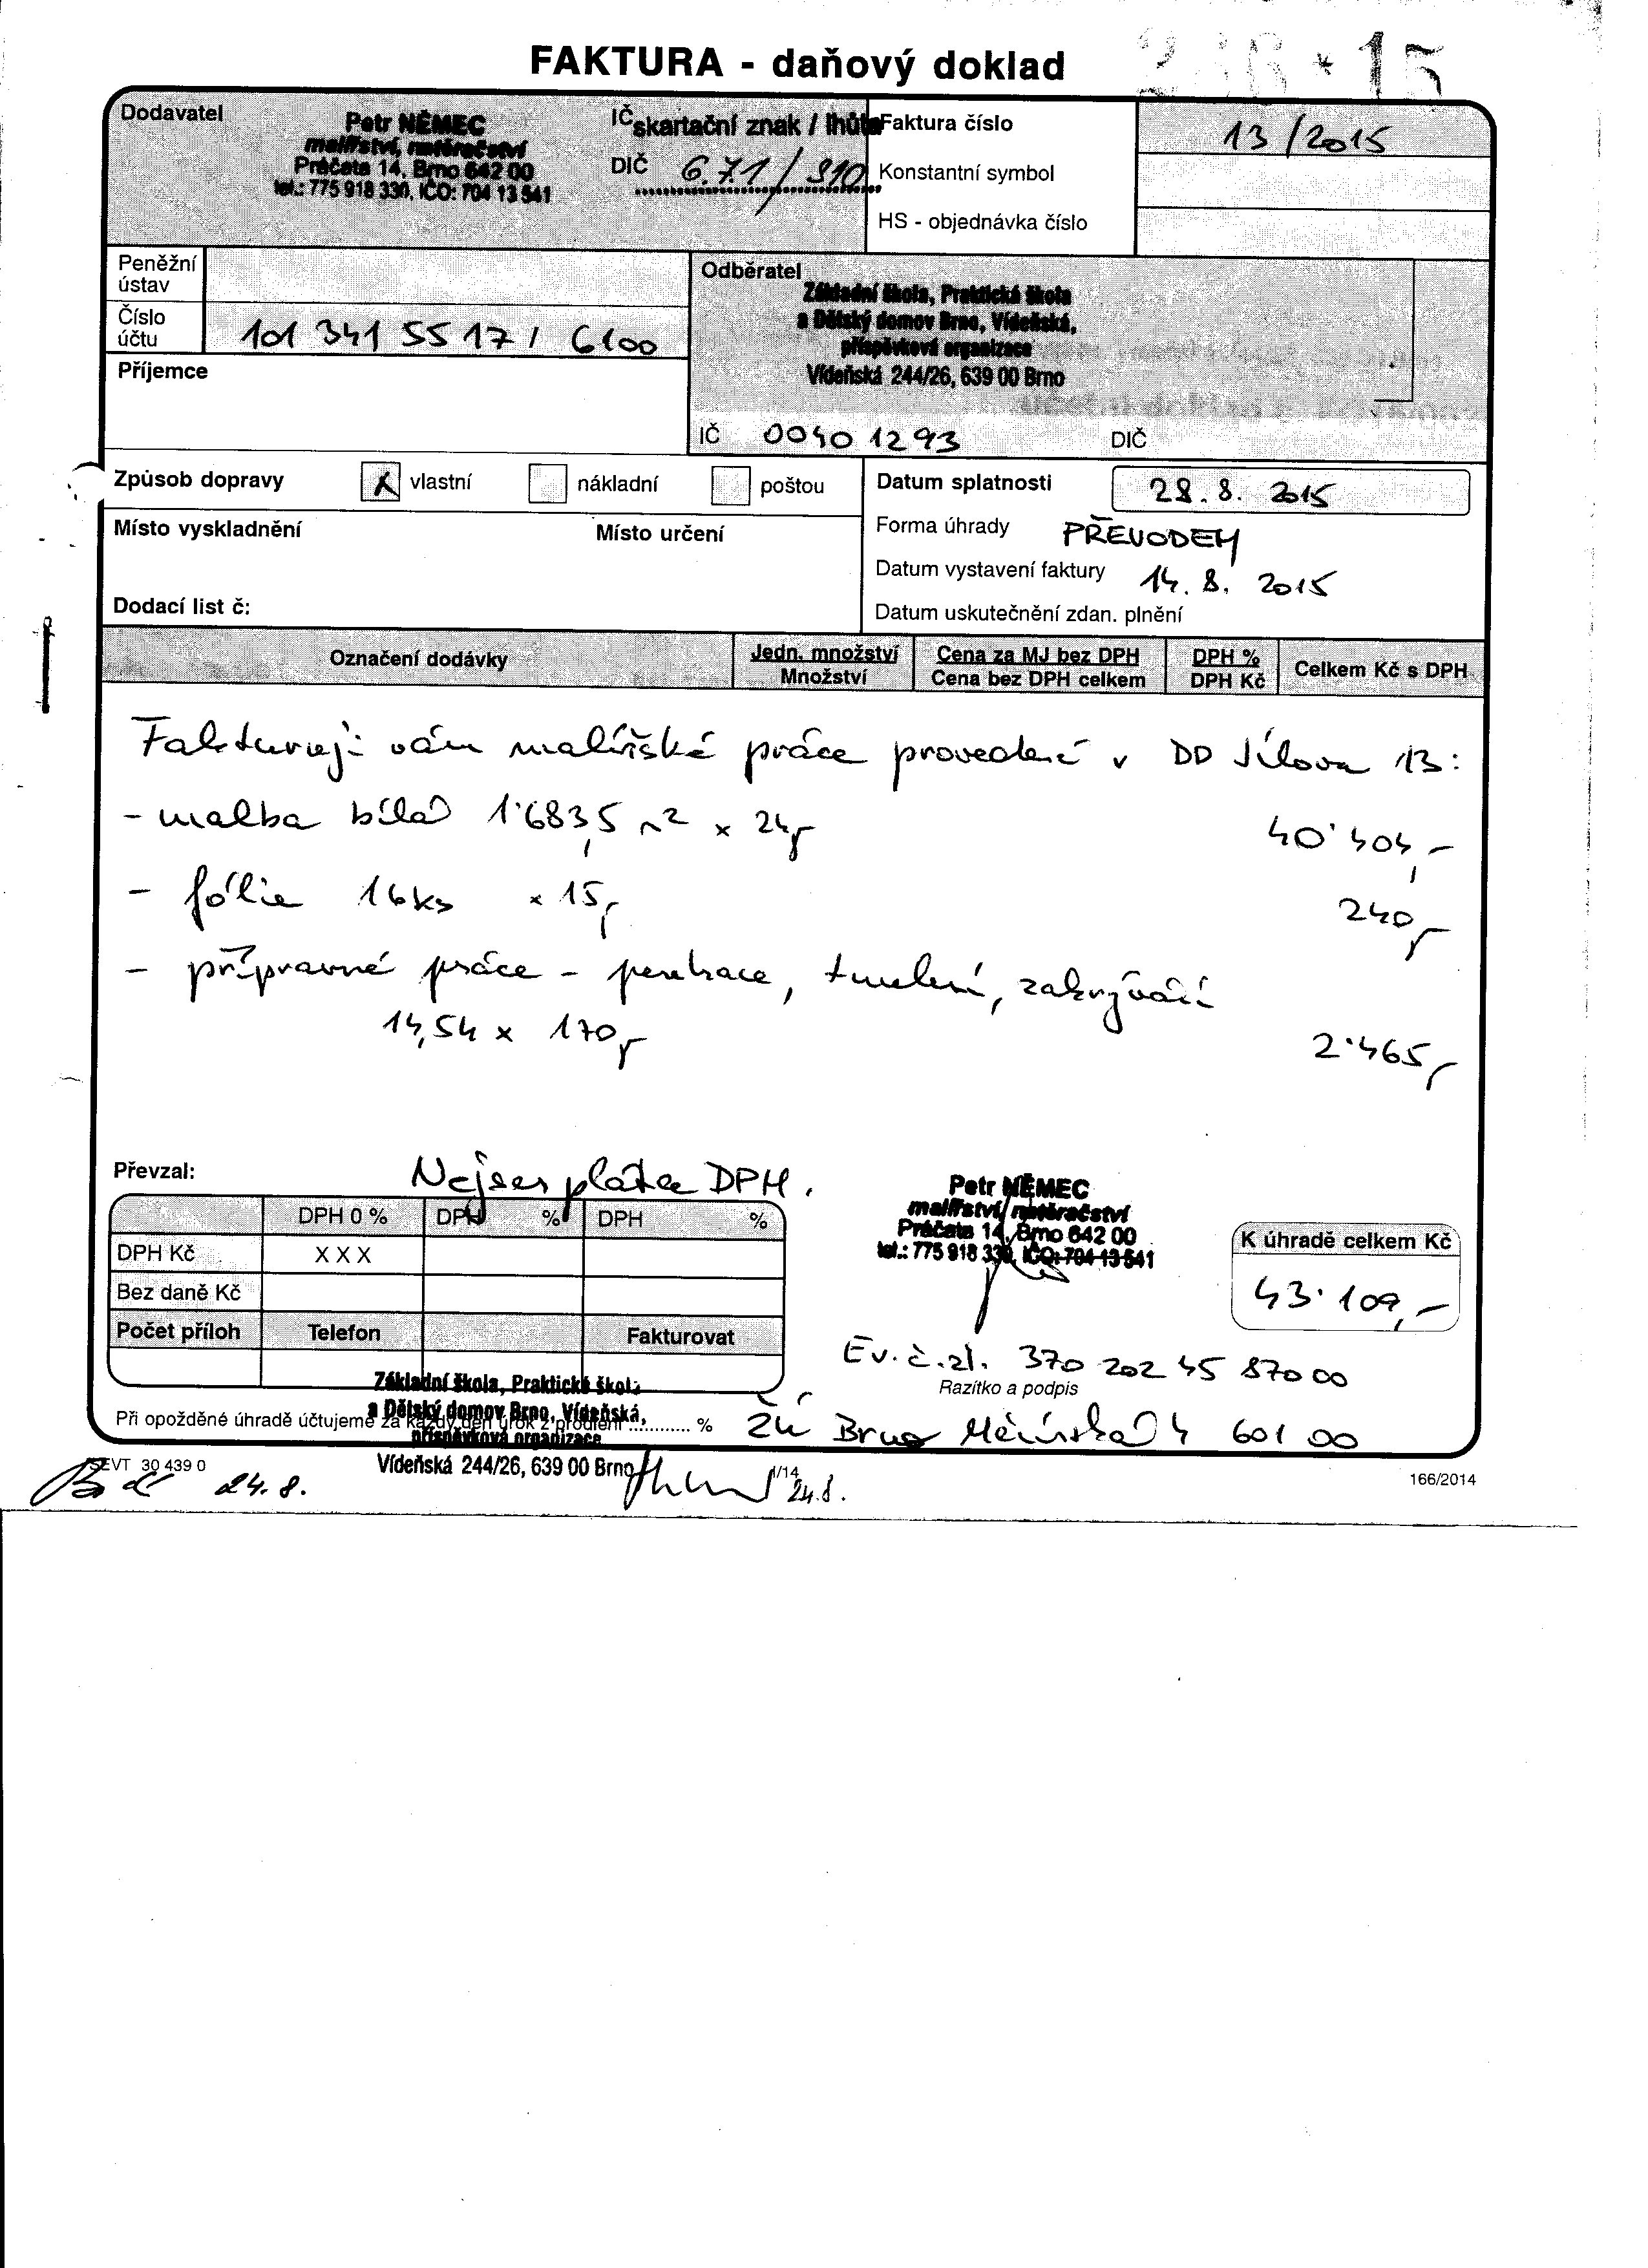 FAKTURA - daňový doklad
* 15
Dodavatel
Petr NĚMEC
malířství, natěračství
Práčata 14, Brno 642 00
tel.: 775 918 330, IČO: 704 13 541
IČ
skartační znak / lhůta
DIČ 6.7.1 / S10
Faktura číslo 13/2015
Konstantní symbol
HS - objednávka číslo
Peněžní ústav
Číslo účtu 101 341 55 17 / 6100
Příjemce
Odběratel
Základní škola, Praktická škola
a Dětský domov Brno, Vídeňská,
příspěvková organizace
Vídeňská 244/26, 639 00 Brno
IČ 00401293 DIČ
Způsob dopravy x vlastní nákladní poštou
Místo vyskladnění Místo určení
Dodací list č:
Datum splatnosti 28. 8. 2015
Forma úhrady PŘEVODEM
Datum vystavení faktury 14. 8. 2015
Datum uskutečnění zdan. plnění
Označení dodávky
Jedn. množství
Množství
Cena za MJ bez DPH
Cena bez DPH celkem
DPH %
DPH Kč
Celkem Kč s DPH
Fakturuji vám malířské práce provedené v DD Jílova 13:
- malba bílá 1'683,5 m2 x 24,- 40'404,-
- fólie 16ks x 15,- 240,-
- přípravné práce - penetrace, tmelení, zakrývání
14,5h x 170,- 2'465,-
Převzal:
Nejsem plátce DPH.
DPH 0 % DPH % DPH %
DPH Kč X X X
Bez daně Kč
Počet příloh Telefon Fakturovat
Petr NĚMEC
malířství, natěračství
Práčata 14, Brno 642 00
tel.: 775 918 330, IČO: 704 13 541
K úhradě celkem Kč
43'109,-
Ev. č. žl. 370 202 45 870 00
Razítko a podpis
Základní škola, Praktická škola
a Dětský domov Brno, Vídeňská,
příspěvková organizace
Vídeňská 244/26, 639 00 Brno
Při opožděné úhradě účtujeme za každý den úrok z prodlení ............ %
ŽÚ Brno Měnínská 4 601 00
SEVT 30 439 0
24. 8.
1/14
24.8.
166/2014